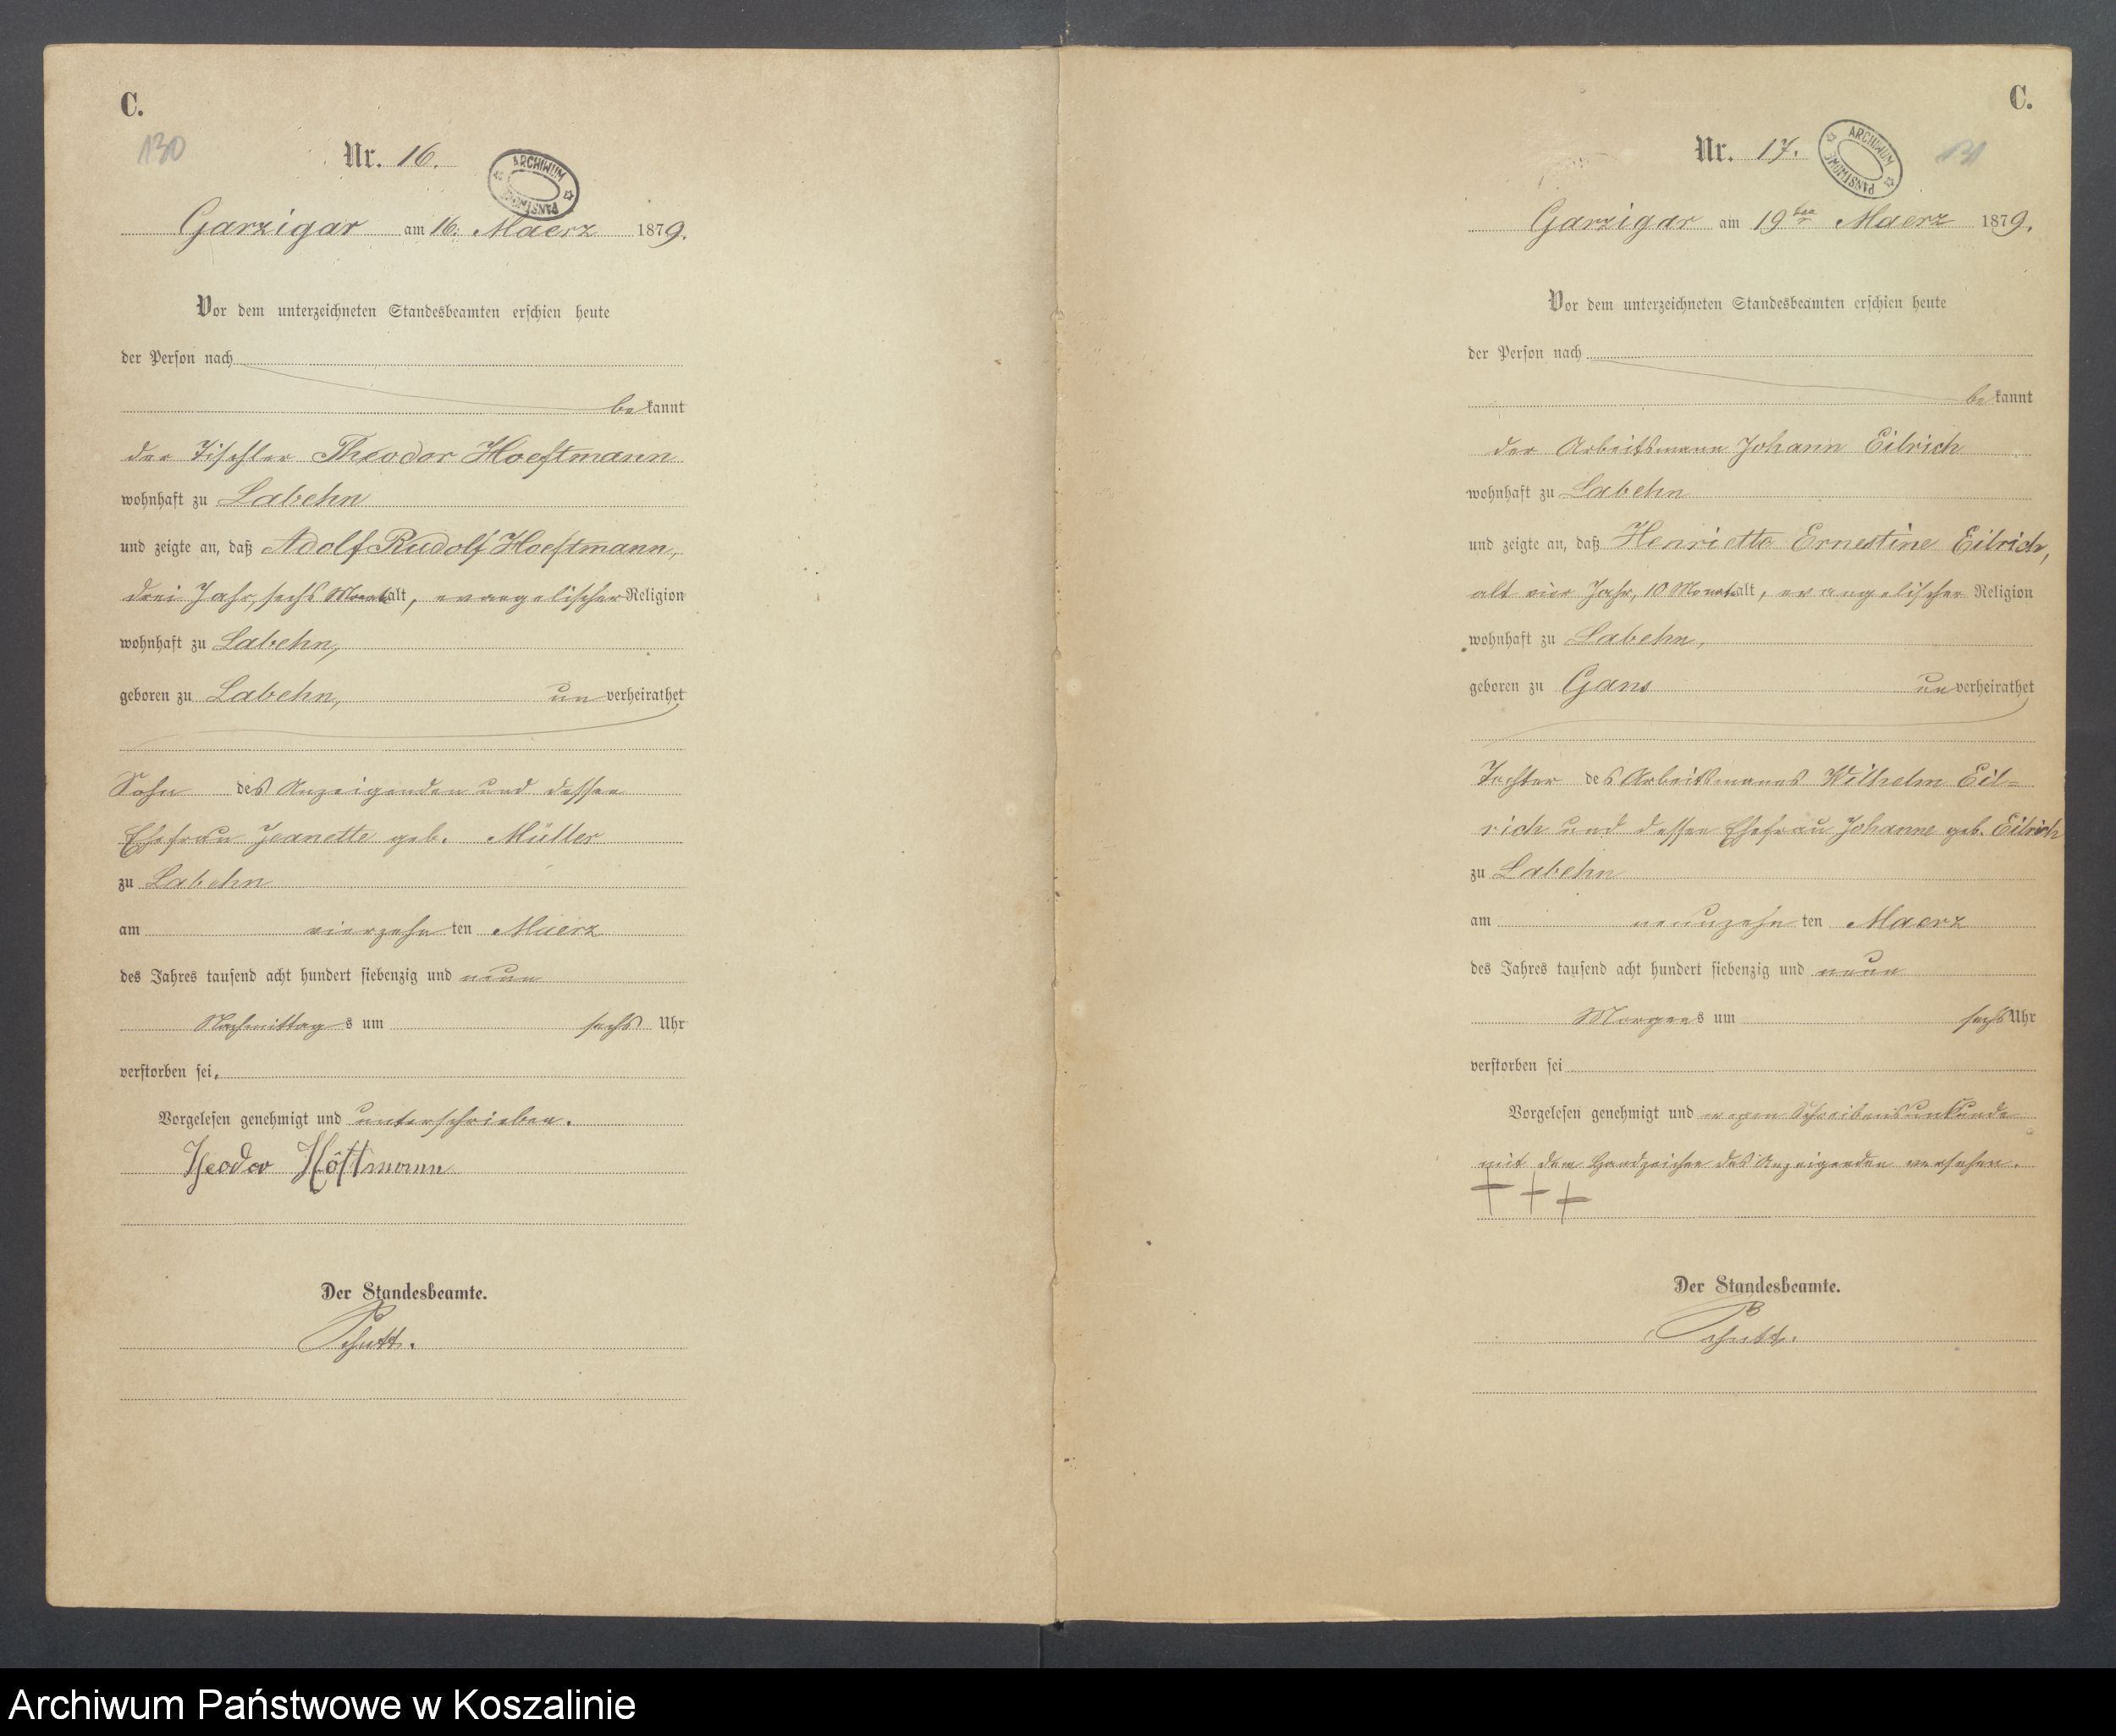 C.
130
Nr. 16.
ARCHIWUM PAŃSTWOWE
Garzigar am 16. Maerz 1879.
Vor dem unterzeichneten Standesbeamten erschien heute
der Person nach
bekannt
der Tischler Theodor Hoeftmann
wohnhaft zu Labehn
und zeigte an, daß Adolf Rudolf Hoeftmann,
drei Jahr, sechs Monat alt, evangelischer Religion
wohnhaft zu Labehn,
geboren zu Labehn, unverheirathet
Sohn des Anzeigenden und dessen
Ehefrau Jeanette geb. Müller
zu Labehn
am vierzehnten Maerz
des Jahres tausend acht hundert siebenzig und neun
Nachmittags um sechs Uhr
verstorben sei.
Vorgelesen genehmigt und unterschrieben.
Theodor Höftmann
Der Standesbeamte.
Schutt.
C.
131
Nr. 17.
ARCHIWUM PAŃSTWOWE
Garzigar am 19ten Maerz 1879.
Vor dem unterzeichneten Standesbeamten erschien heute
der Person nach
bekannt
der Arbeitsmann Johann Eilrich
wohnhaft zu Labehn
und zeigte an, daß Henriette Ernestine Eilrich,
alt vier Jahr, 10 Monat alt, evangelischer Religion
wohnhaft zu Labehn,
geboren zu Gans unverheirathet
Tochter des Arbeitsmanns Wilhelm Eil=
rich und dessen Ehefrau Johanne geb. Eilrich
zu Labehn
am neunzehnten Maerz
des Jahres tausend acht hundert siebenzig und neun
Morgens um sechs Uhr
verstorben sei
Vorgelesen genehmigt und wegen Schreibensunkunde
mit dem Handzeichen des Anzeigenden versehen.
+++
Der Standesbeamte.
Schutt.
Archiwum Państwowe w Koszalinie